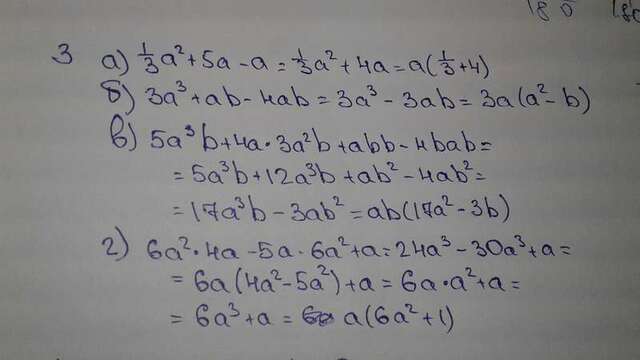 180 180
3 а) 1/3a² + 5a - a = 1/3a² + 4a = a(1/3 + 4)
б) 3a³ + ab - 4ab = 3a³ - 3ab = 3a(a² - b)
в) 5a³b + 4a · 3a²b + abb - 4bab =
= 5a³b + 12a³b + ab² - 4ab² =
= 17a³b - 3ab² = ab(17a² - 3b)
г) 6a² · 4a - 5a · 6a² + a = 24a³ - 30a³ + a =
= 6a(4a² - 5a²) + a = 6a · a² + a =
= 6a³ + a = a(6a² + 1)